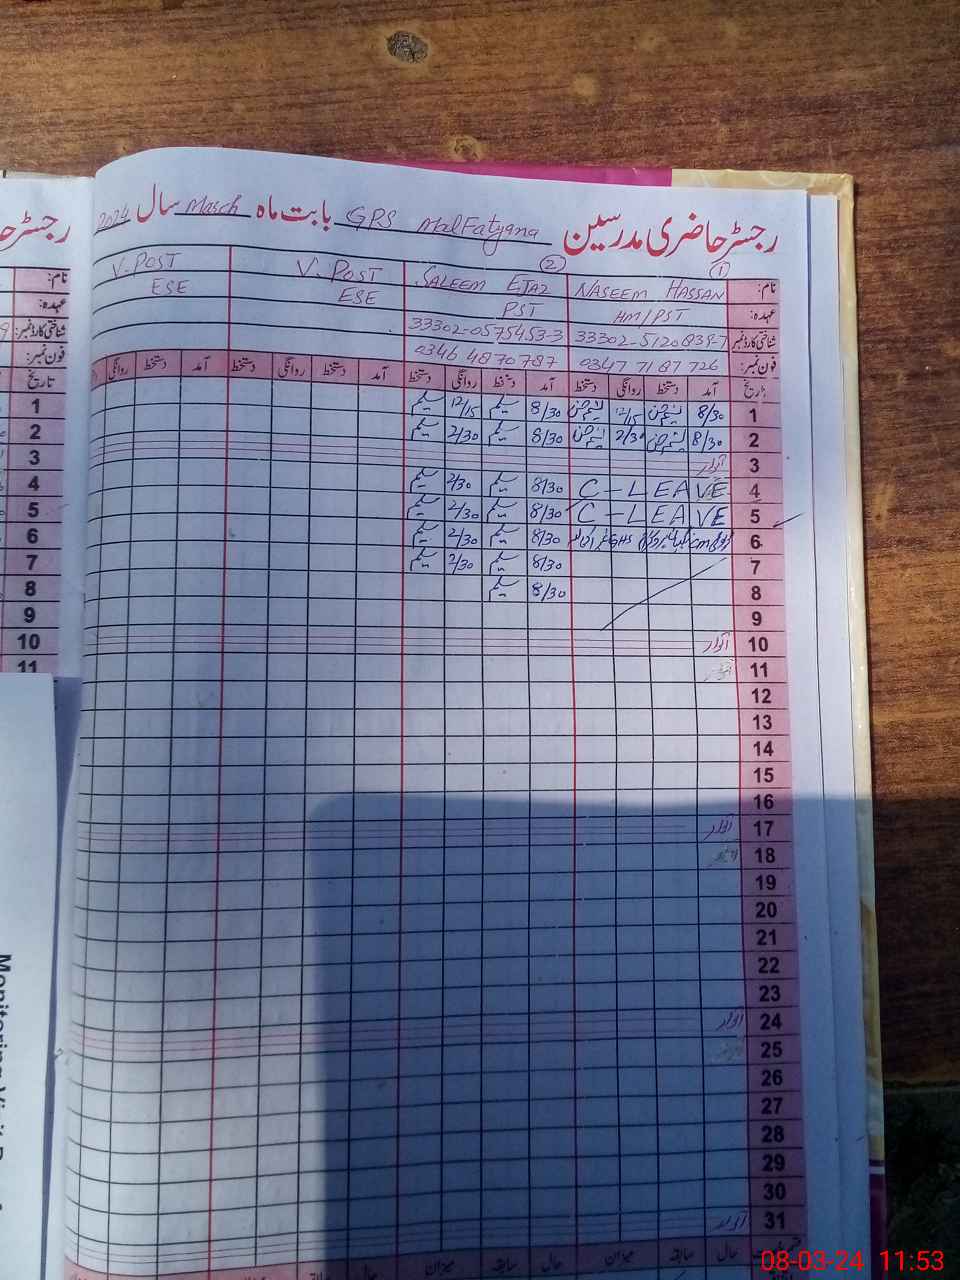 رجسٹر حاضری مدرسین GPS Mal Fatyana بابت ماہ March سال 2024
(1) (2)
نام: NASEEM HASSAN SALEEM EJAZ V.POST V.POST
عہدہ: HM/PST PST ESE ESE
شناختی کارڈ نمبر: 33302-5120839-7 33302-0575453-3
فون نمبر: 0347 7187726 0346 4870787
تاریخ آمد دستخط روانگی دستخط آمد دستخط روانگی دستخط آمد دستخط روانگی دستخط آمد دستخط روانگی
1 8/30 12/15 8/30 سلیم 12/15 سلیم
2 8/30 2/30 8/30 سلیم 2/30 سلیم
3 اتوار
4 C-LEAVE 8/30 سلیم 2/30 سلیم
5 C-LEAVE 8/30 سلیم 2/30 سلیم
6 GHS 8/30 سلیم 2/30 سلیم
7 8/30 سلیم 2/30 سلیم
8 8/30 سلیم
9
10 اتوار
11
12
13
14
15
16
17 اتوار
18
19
20
21
22
23
24 اتوار
25
26
27
28
29
30
31 اتوار
حال سابقہ میزان حال سابقہ میزان حال
رجسٹر
نام:
عہدہ:
شناختی کارڈ نمبر:
فون نمبر:
تاریخ
1
2
3
4
5
6
7
8
9
10
11
Monitoring Visit
08-03-24 11:53